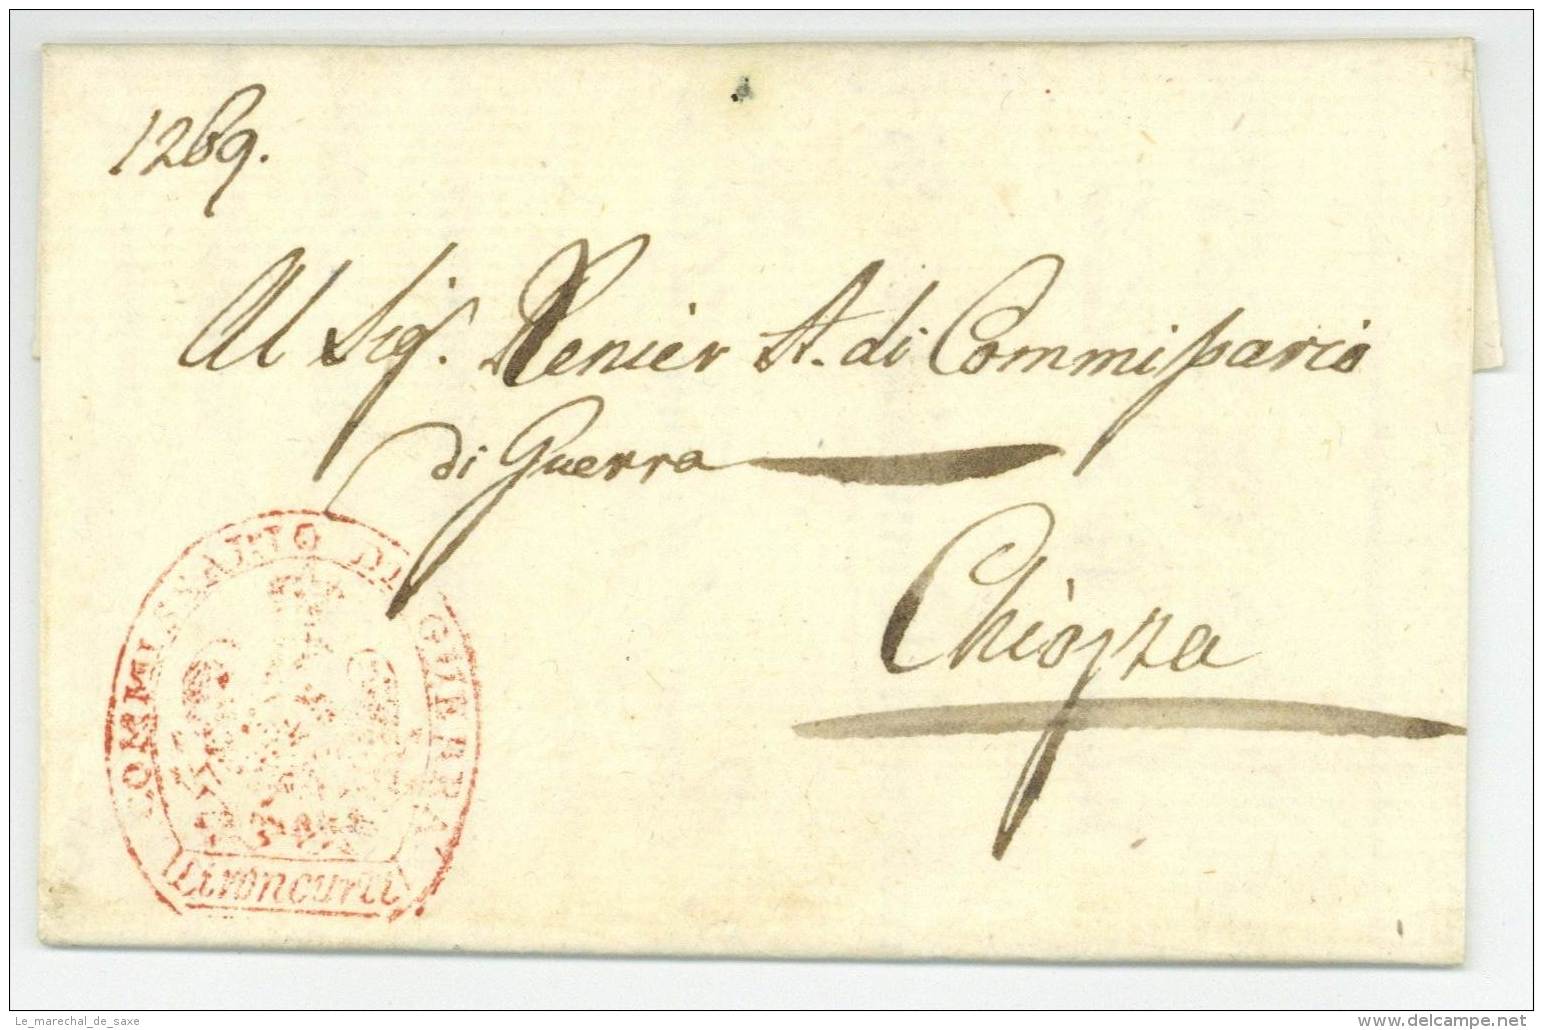 1269.
Al Sig.r Renier A. di Commissario
di Guerra
Chiozza
COMMISSARIO DI GUERRA
Le_marechal_de_saxe
www.delcampe.net